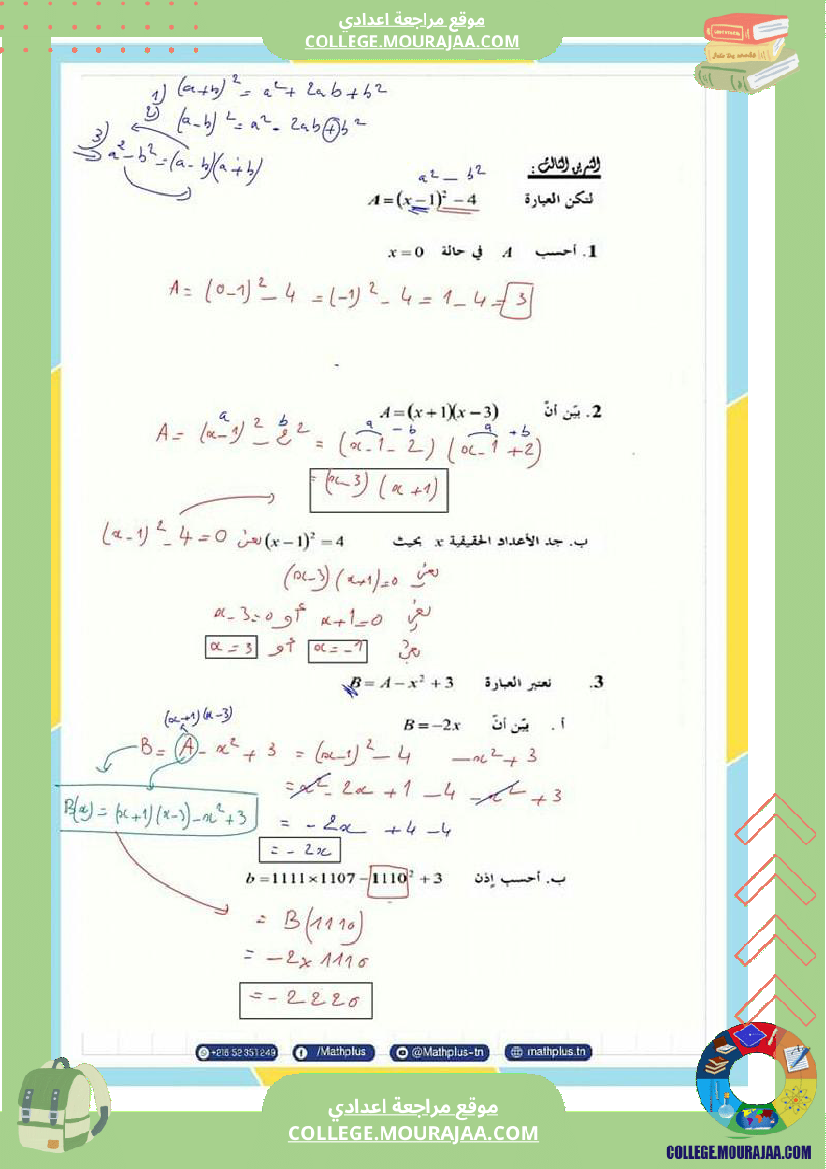 موقع مراجعة اعدادي
COLLEGE.MOURAJAA.COM
1) (a+b)² = a² + 2ab + b²
2) (a-b)² = a² - 2ab + b²
3) a² - b² = (a-b)(a+b)
التمرين الثالث :
a² - b²
لتكن العبارة A = (x-1)² - 4
1. أحسب A في حالة x = 0
A = (0-1)² - 4 = (-1)² - 4 = 1 - 4 = 3
2. بيّن أنّ A = (x+1)(x-3)
a b a - b a + b
A = (x-1)² - 2² = (x-1-2)(x-1+2)
= (x-3)(x+1)
ب. جد الأعداد الحقيقية x بحيث (x-1)² = 4 يعني (x-1)² - 4 = 0
يعني (x-3)(x+1) = 0
يعني x+1=0 أو x-3=0
يعني x = -1 أو x = 3
3. نعتبر العبارة B = A - x² + 3
أ. بيّن أنّ B = -2x
(x+1)(x-3)
B = A - x² + 3 = (x-1)² - 4 - x² + 3
= x² - 2x + 1 - 4 - x² + 3
B(x) = (x+1)(x-3) - x² + 3
= -2x + 4 - 4
= -2x
ب. أحسب إذن b = 1111×1107 - 1110² + 3
= B(1110)
= -2 × 1110
= -2220
+216 52 351 249 /Mathplus @Mathplus-tn mathplus.tn
موقع مراجعة اعدادي
COLLEGE.MOURAJAA.COM
COLLEGE.MOURAJAA.COM